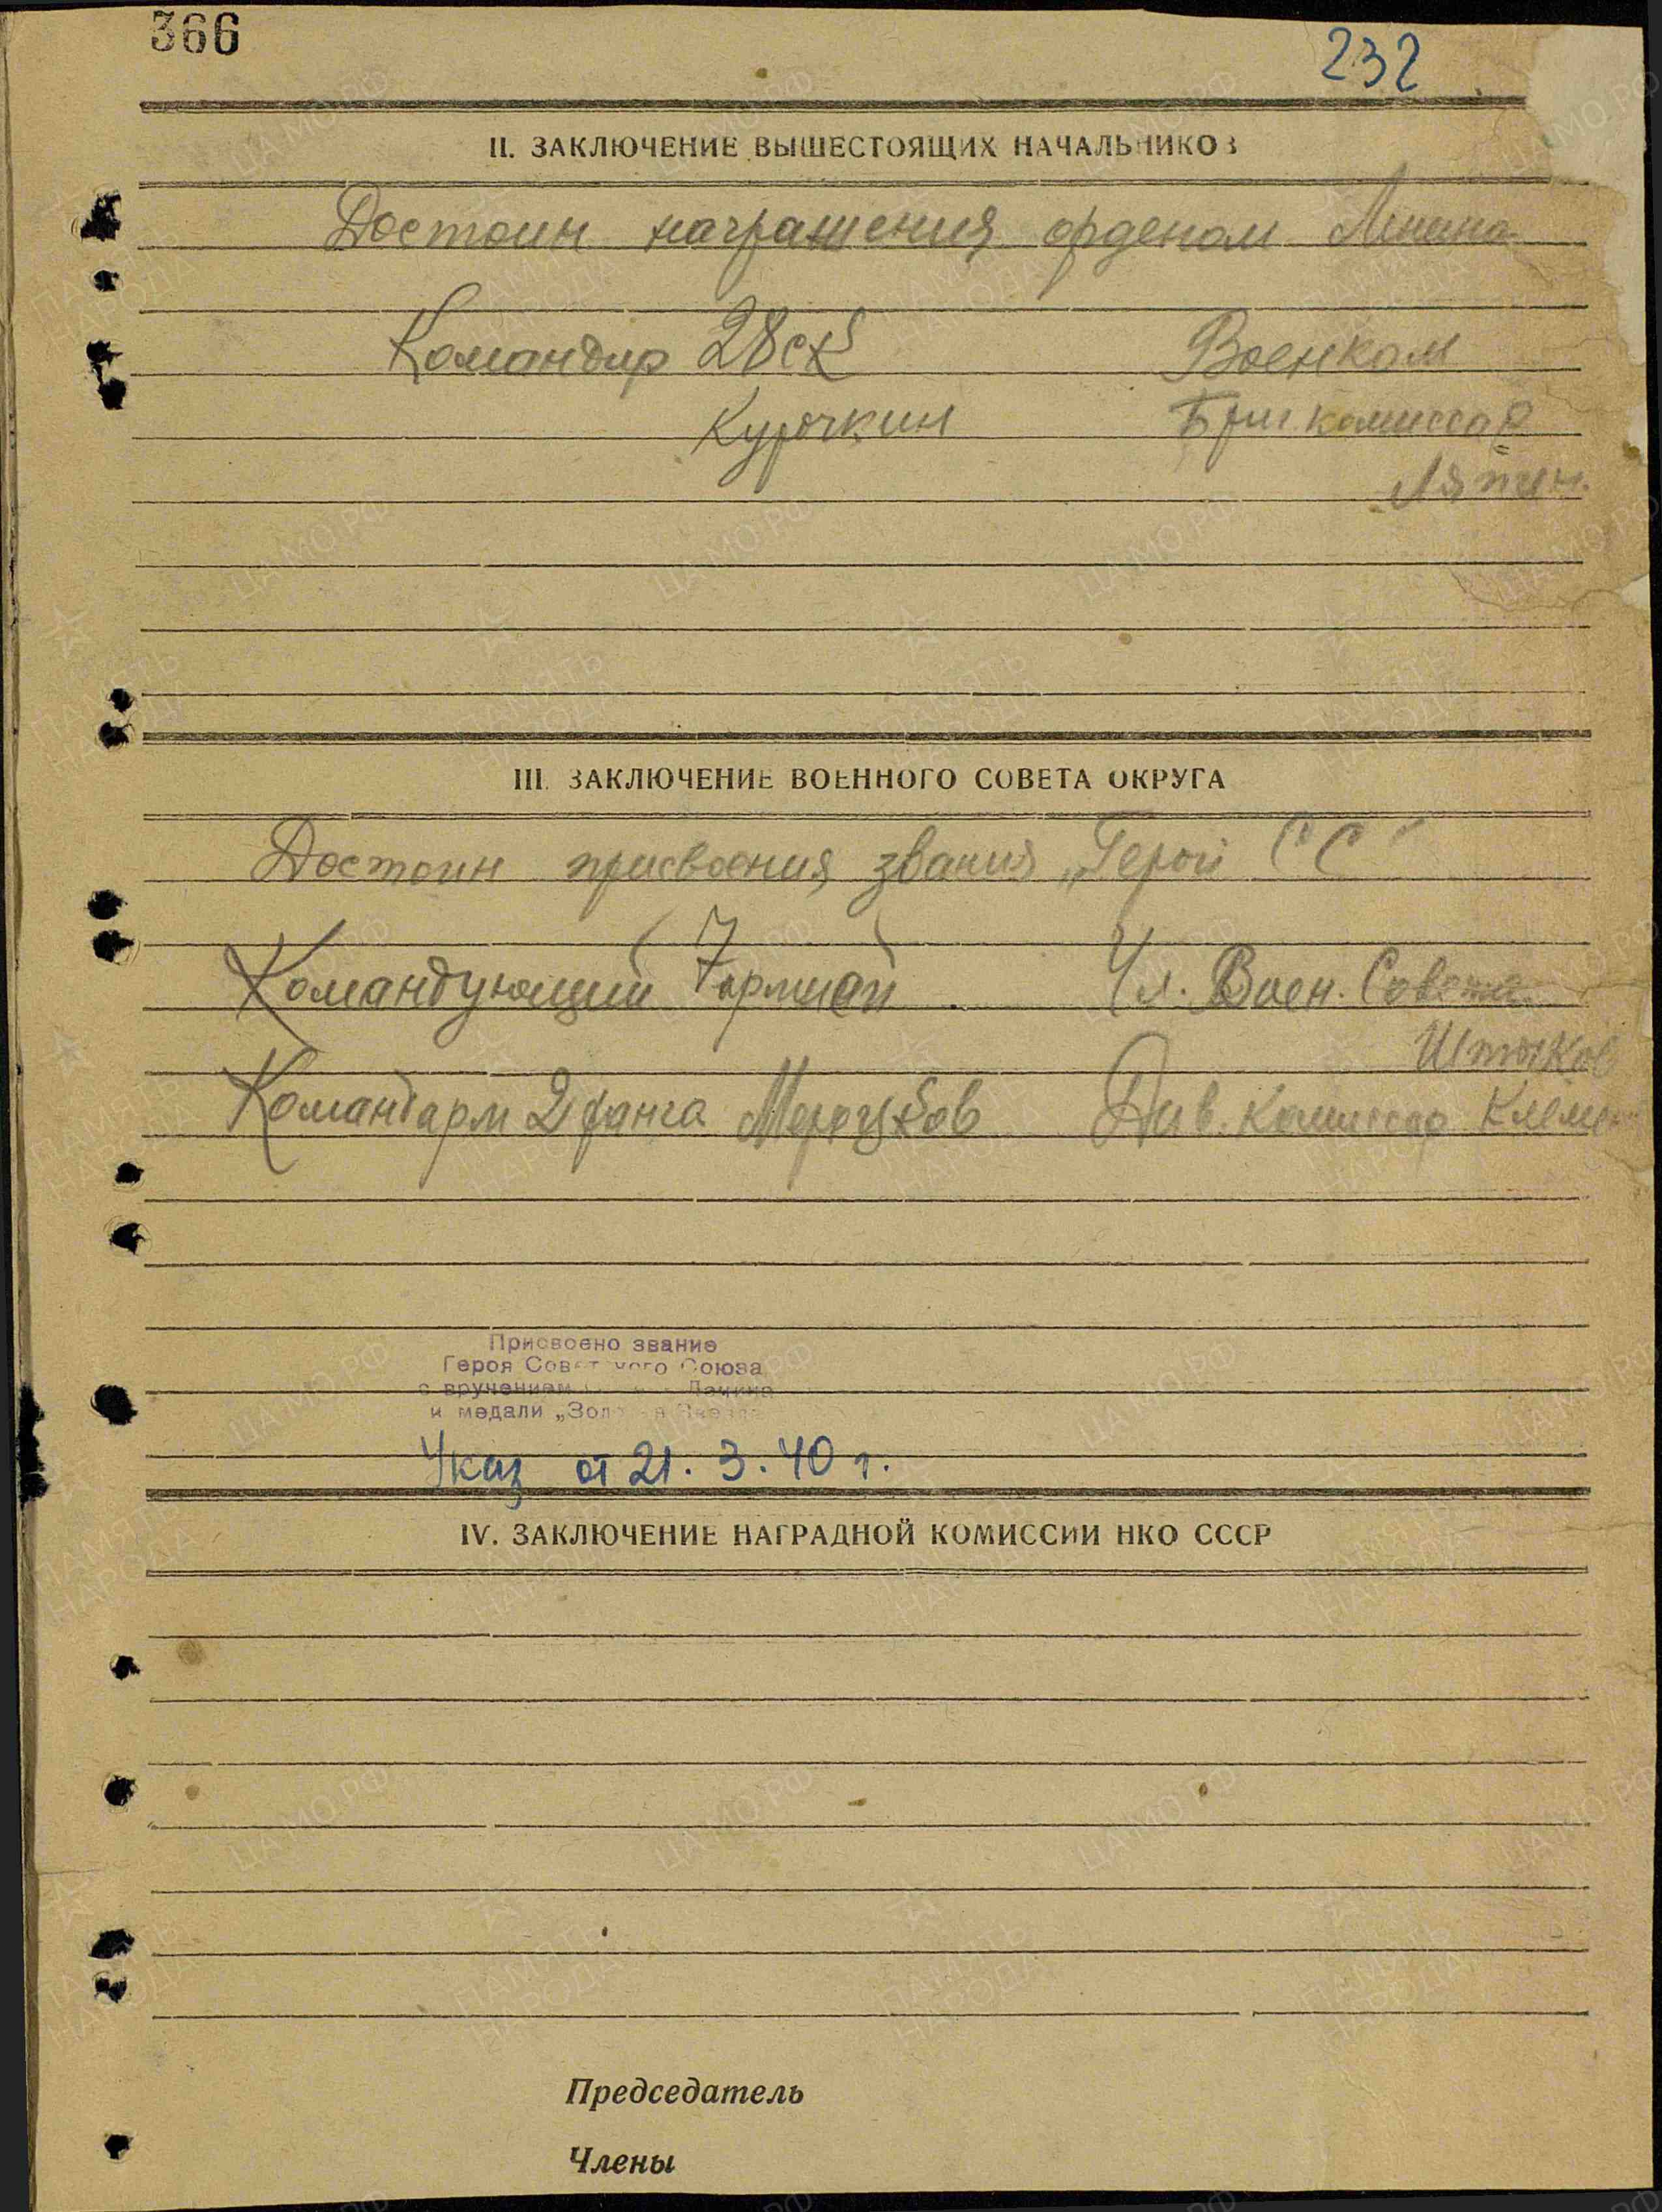 366
232
II. ЗАКЛЮЧЕНИЕ ВЫШЕСТОЯЩИХ НАЧАЛЬНИКОВ
Достоин награждения орденом Ленина
Командир 28 ск Военком
Курочкин Бриг. комиссар
III. ЗАКЛЮЧЕНИЕ ВОЕННОГО СОВЕТА ОКРУГА
Достоин присвоения звания „Герой СС"
Командующий 7 армией Чл. Воен. Совета
Штыков
Командарм 2 ранга Мерецков Див. комиссар
Присвоено звание
Героя Советского Союза
с вручением Ленина
и медали „Золотая Звезда
Указ от 21. 3. 40 г.
IV. ЗАКЛЮЧЕНИЕ НАГРАДНОЙ КОМИССИИ НКО СССР
Председатель
Члены